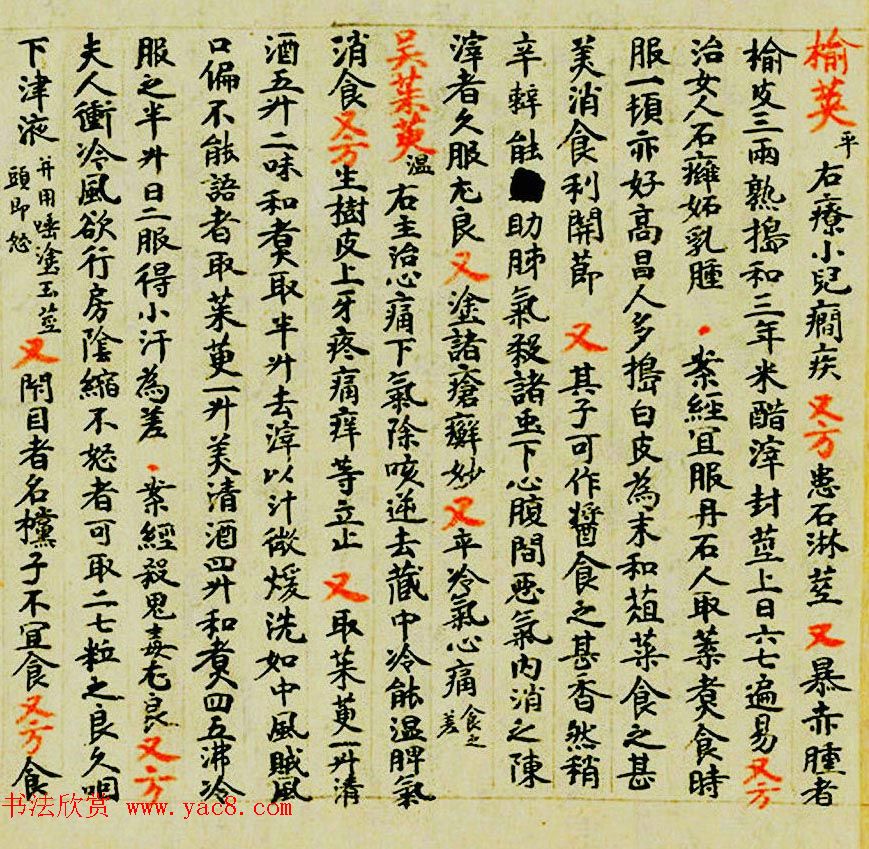 榆荚平 右療小兒癇疾 又方患石淋莖 又暴赤腫者
榆皮三兩熟搗和三年米醋滓封莖上日六七遍易又方
治女人石癰妬乳腫 ·案經宜服丹石人取葉煮食時
服一頓亦好高昌人多搗白皮為末和葅菜食之甚
美消食利關節 又其子可作醬食之甚香然稍
辛辣能助肺氣殺諸虫下心腹間惡氣内消之陳
滓者久服尤良又塗諸瘡癬妙又卒冷氣心痛食之差
吴茱萸温 右主治心痛下氣除咳逆去藏中冷能温脾氣
消食又方生樹皮上牙疼痛痒等立止 又取茱萸一升清
酒五升二味和煮取半升去滓以汁微煖洗如中風賊風
口偏不能語者取茱萸一升美清酒四升和煮四五沸冷
服之半升日二服得小汗為差 ·案經殺鬼毒尤良又方
夫人衝冷風欲行房陰縮不怒者可取二七粒之良久咽
下津液并用唾塗玉莖頭即怒 又閉目者名欓子不宜食又方食
书法欣赏 www.yac8.com